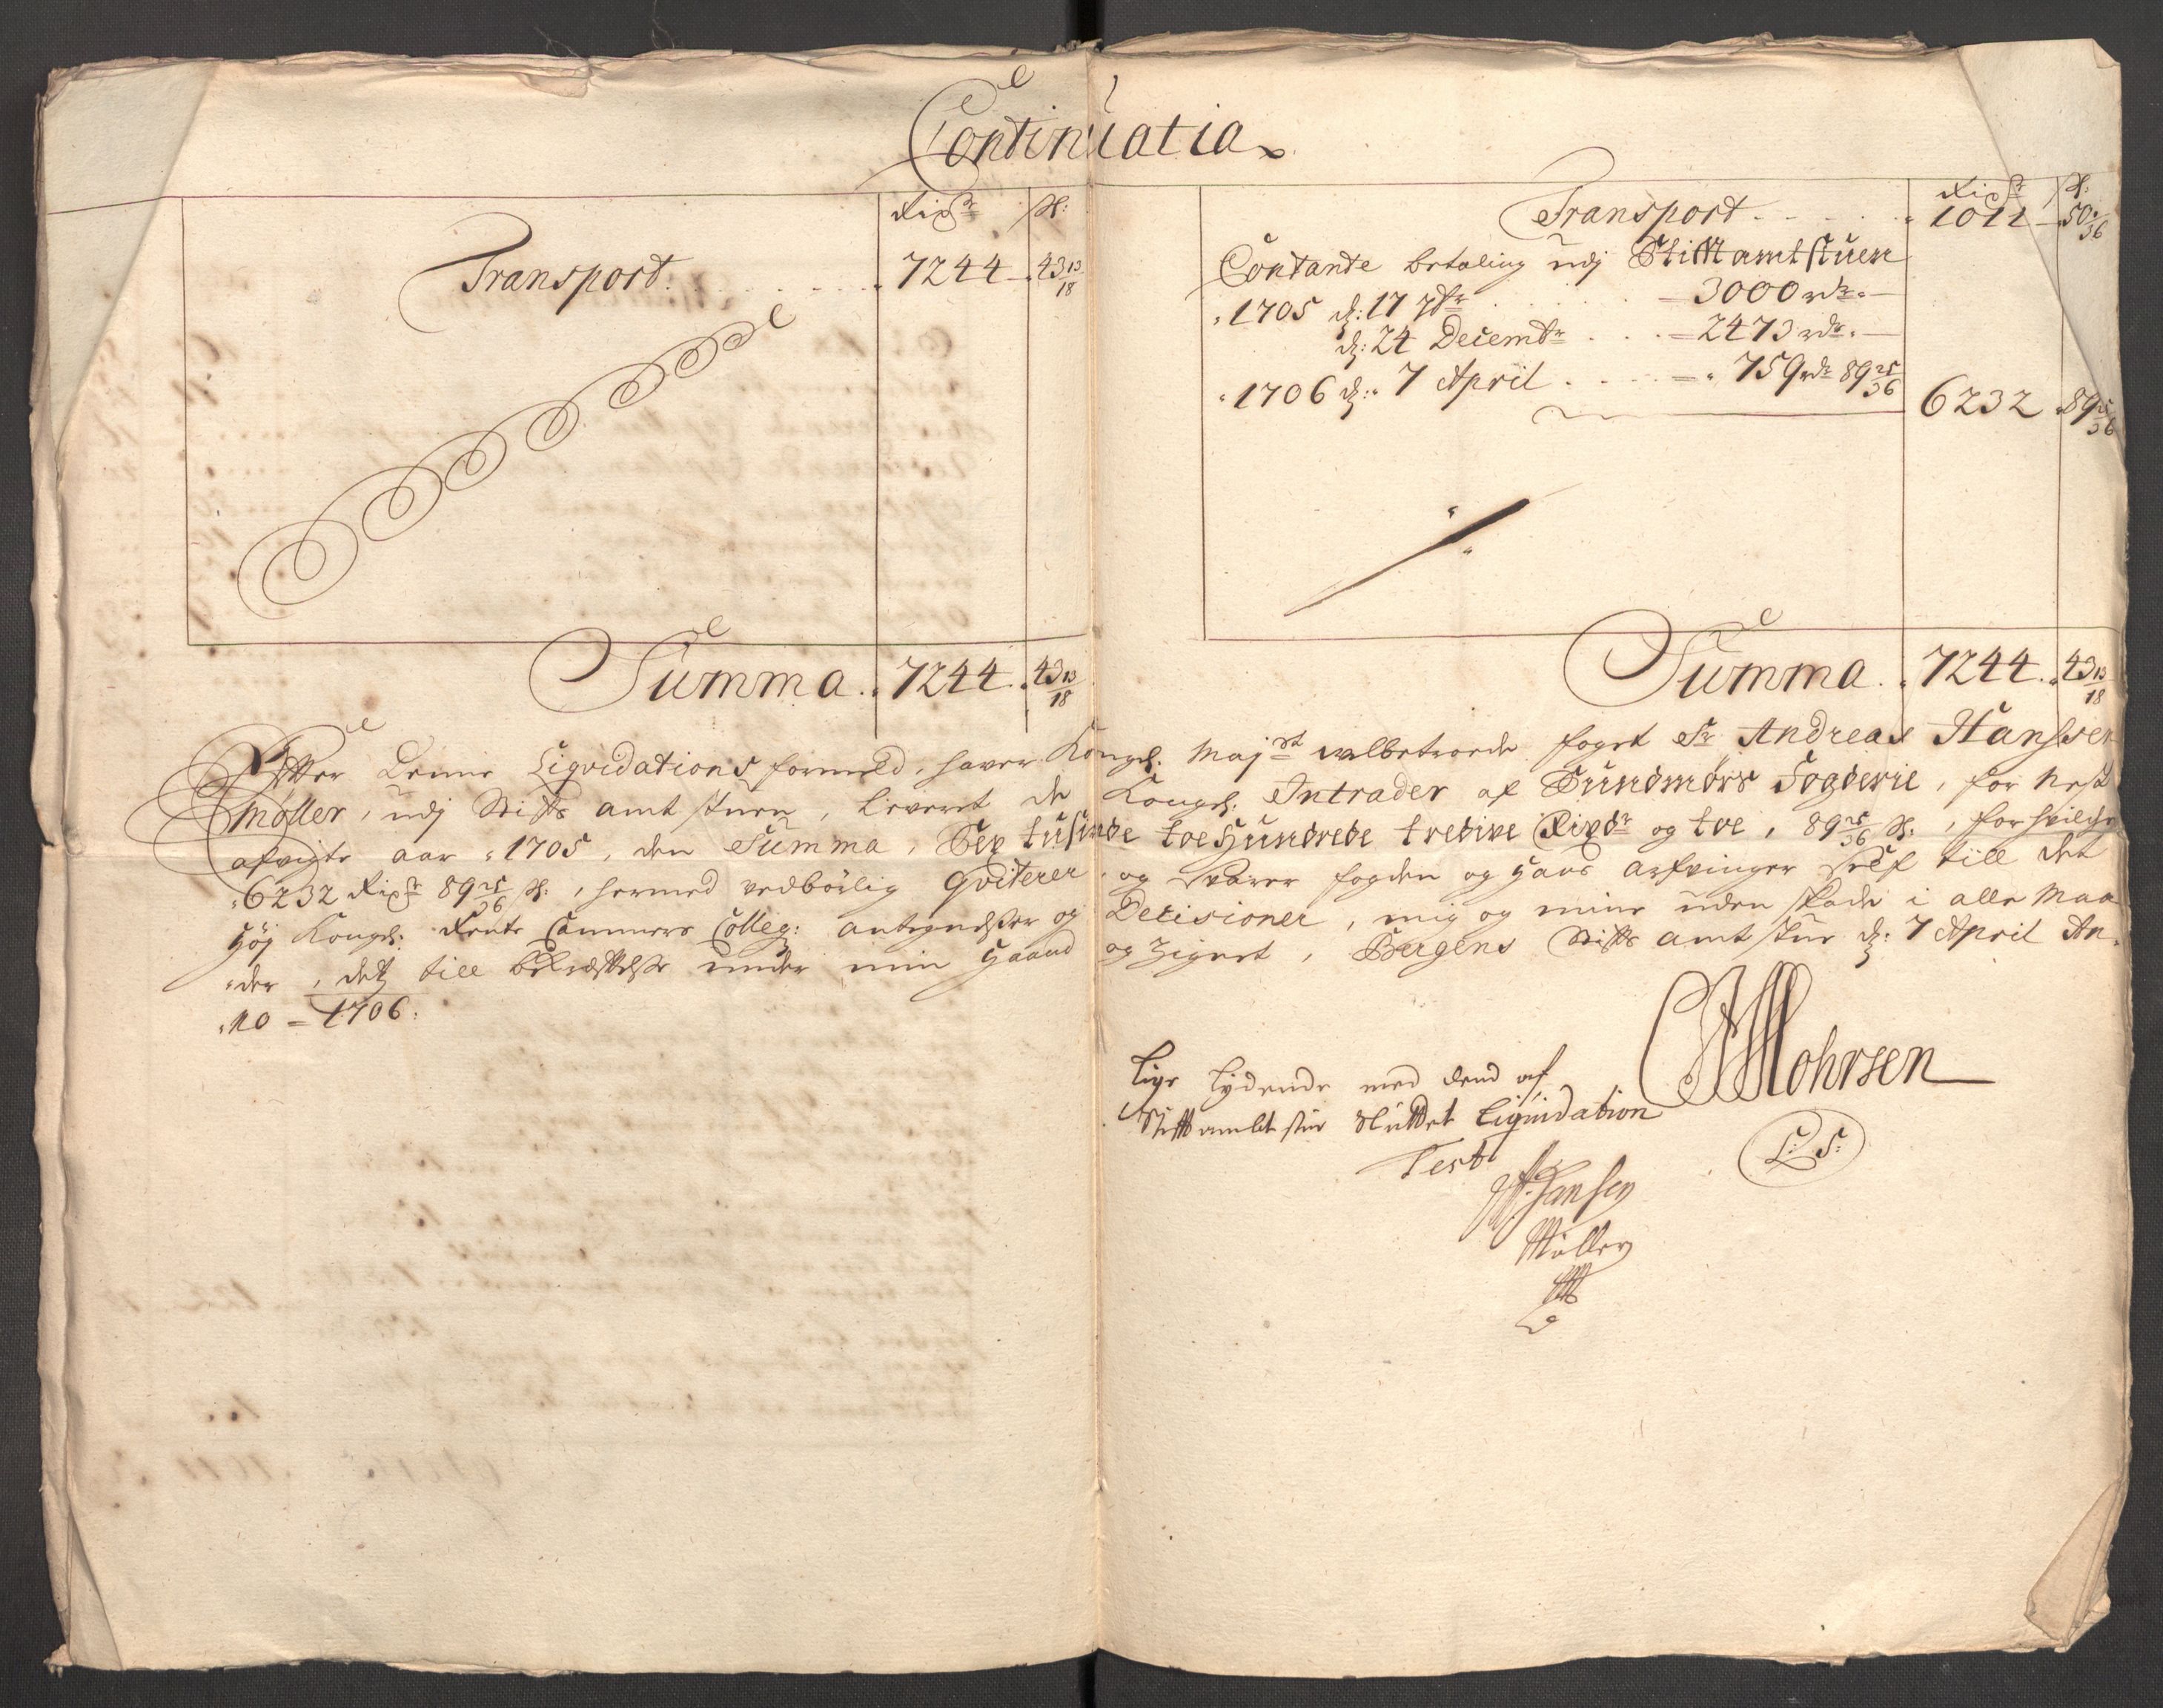 Continuatia
Rixdr ß:
Transport. 7244 43 13/18
Summa. 7244. 43 13/18
Rixdr ß:
Transport 1011 50 /36
Contante betaling udj Stifftamtstuen
1705 d: 17 7br 3000 rdr
d: 24 Decembr 2473 rdr
1706 d: 7 April 759 rdr 89 25/36
6232 89 25/36
Summa. 7244. 43 13/18
Effter denne Liqvidations formeld, haver Kongel: Majst velbetroede fogect Sr Andreas Hanssen
Møller, udj Stiffts amt stuen, Leveret de Kongel: Intrader af Sundmørs Fogderie, for nest
afvigte aar 1705, den Summa, Sex tusinde toe Hundrede tredive Rixdr og toe, 89 25/36 ß:, for hvilche
6232 Rixdr 89 25/36 ß:, hermed vedbörlig Qviterer, og svarer fogden og hans arfvinger self till det
höy Kongel: Rente Cammers Colleg: antegnelser og Decisioner, mig og mine uden skade i alle maa
der, dets till bekræfftelse under min Haand og Zignet, Bergens Stiffts amt stue d: 7 April An
no 1706.
Mohrsen
Lige lydende med dend af
Stifftamtstue sluttet Liqvidation
L: S:
Test
Hansen
Møller